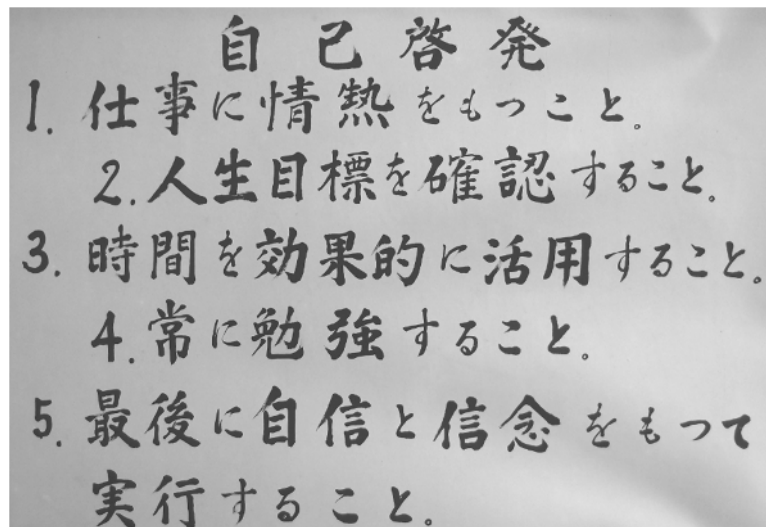 自己啓発
1. 仕事に情熱をもつこと。
2. 人生目標を確認すること。
3. 時間を効果的に活用すること。
4. 常に勉強すること。
5. 最後に自信と信念をもつて
実行すること。